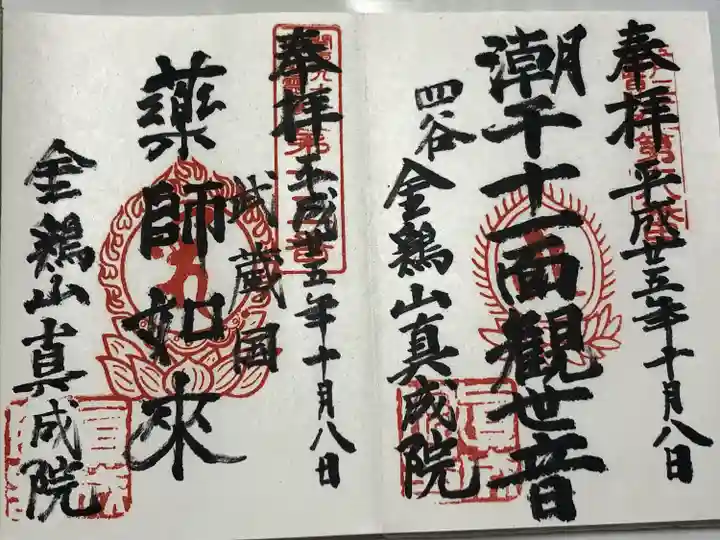 奉拝 平成廿五年十月八日
潮干十一面観世音
四谷 金鶏山真成院
奉拝 平成廿五年十月八日
武蔵国
薬師如来
金鶏山真成院